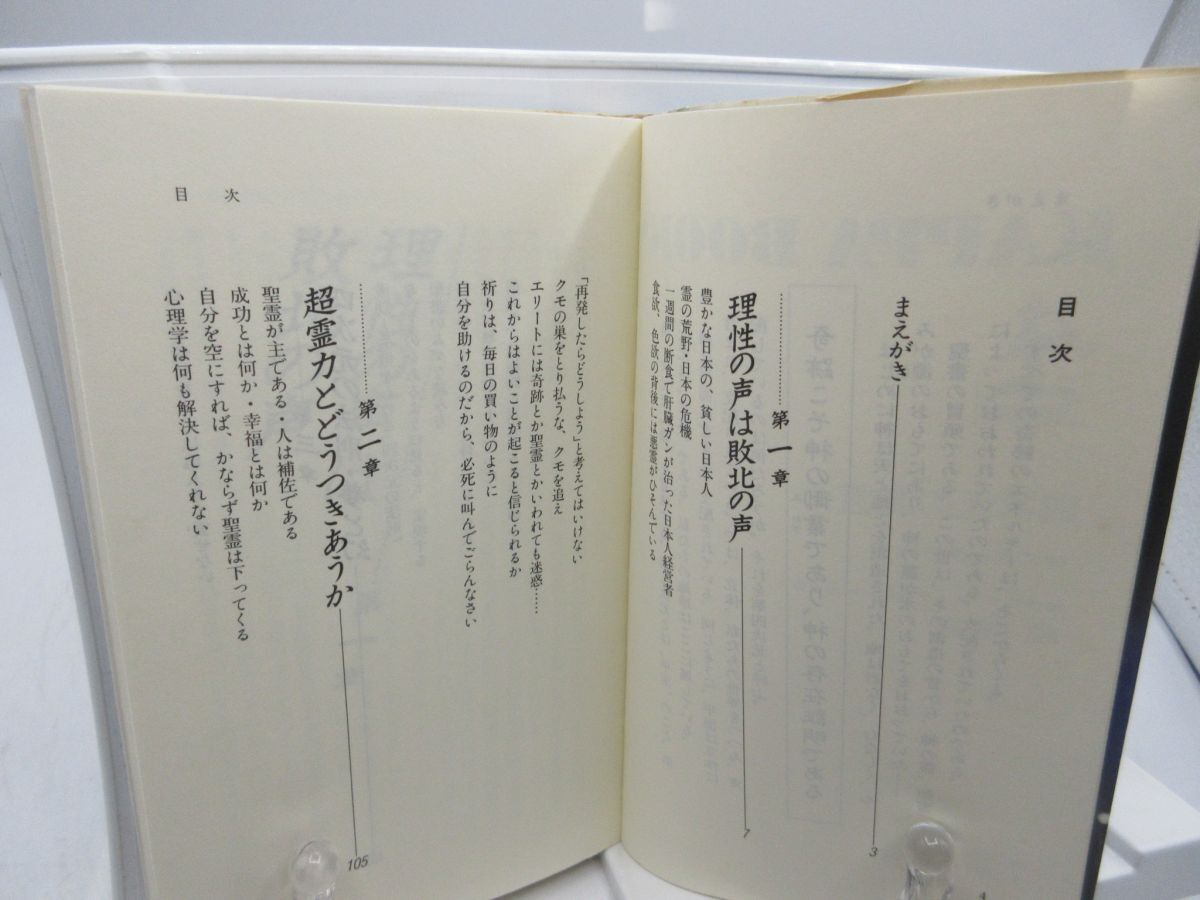 目次
まえがき 3
第一章
理性の声は敗北の声 7
豊かな日本の、貧しい日本人
霊の荒野・日本の危機
一週間の断食で肝臓ガンが治った日本人経営者
食欲、色欲の背後には悪霊がひそんでいる
「再発したらどうしよう」と考えてはいけない
クモの巣をとり払うな、クモを追え
エリートには奇跡とか聖霊とかいわれても迷惑……
これからはよいことが起こると信じられるか
祈りは、毎日の買い物のように
自分を助けるのだから、必死に叫んでごらんなさい
第二章
超霊力とどうつきあうか 105
聖霊が主である・人は補佐である
成功とは何か・幸福とは何か
自分を空にすれば、かならず聖霊は下ってくる
心理学は何も解決してくれない
目次